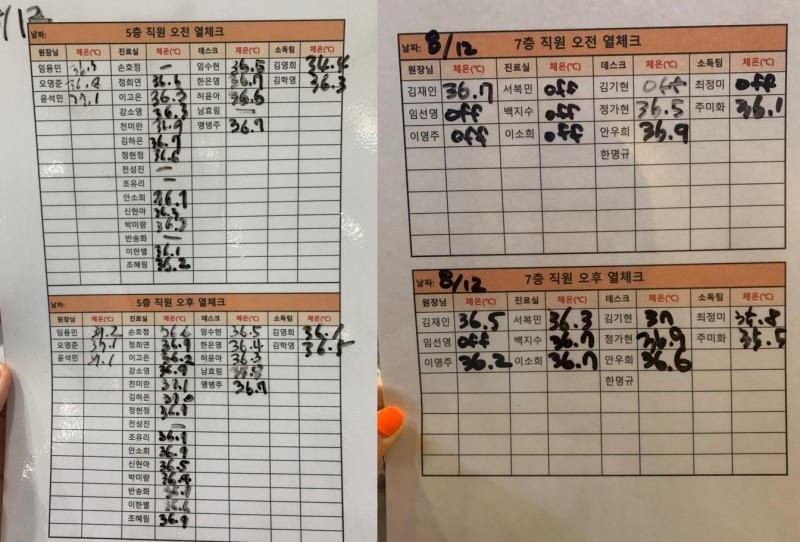 8/12
날짜: 5층 직원 오전 열체크
원장님 체온(℃) 진료실 체온(℃) 데스크 체온(℃) 소독팀 체온(℃)
임용민 손호정 — 임수현 36.5 김영희 34.4
오영준 정희연 36.6 한은영 36.7 김학영 36.3
윤석민 37.1 이고은 36.3 허윤아 36.6
강소영 36.3 남효림 —
천미란 36.9 맹병주 36.7
김하은 36.7
정현정 36.6
전성진 —
조유리 —
안소희 36.7
신현아 36.3
박미랑 36.3
반송화 —
이한별 36.1
조혜림 36.2
날짜: 5층 직원 오후 열체크
원장님 체온(℃) 진료실 체온(℃) 데스크 체온(℃) 소독팀 체온(℃)
임용민 37.2 손호정 36.6 임수현 36.5 김영희 36.1
오영준 37.1 정희연 36.9 한은영 36.4 김학영 36.5
윤석민 37.1 이고은 36.2 허윤아 36.3
강소영 36.9 남효림
천미란 37.1 맹병주 36.7
김하은 37.0
정현정 36.9
전성진 —
조유리 36.9
안소희 36.9
신현아 36.5
박미랑 36.4
반송화
이한별
조혜림 36.9
날짜: 8/12 7층 직원 오전 열체크
원장님 체온(℃) 진료실 체온(℃) 데스크 체온(℃) 소독팀 체온(℃)
김재인 36.7 서복민 off 김기현 off 최정미 off
임선영 off 백지수 off 정가현 36.5 주미화 36.1
이영주 off 이소희 off 안우희 36.9
한명규
날짜: 8/12 7층 직원 오후 열체크
원장님 체온(℃) 진료실 체온(℃) 데스크 체온(℃) 소독팀 체온(℃)
김재인 36.5 서복민 36.3 김기현 37 최정미 36.8
임선영 off 백지수 36.7 정가현 36.9 주미화 35.5
이영주 36.2 이소희 36.7 안우희 36.6
한명규